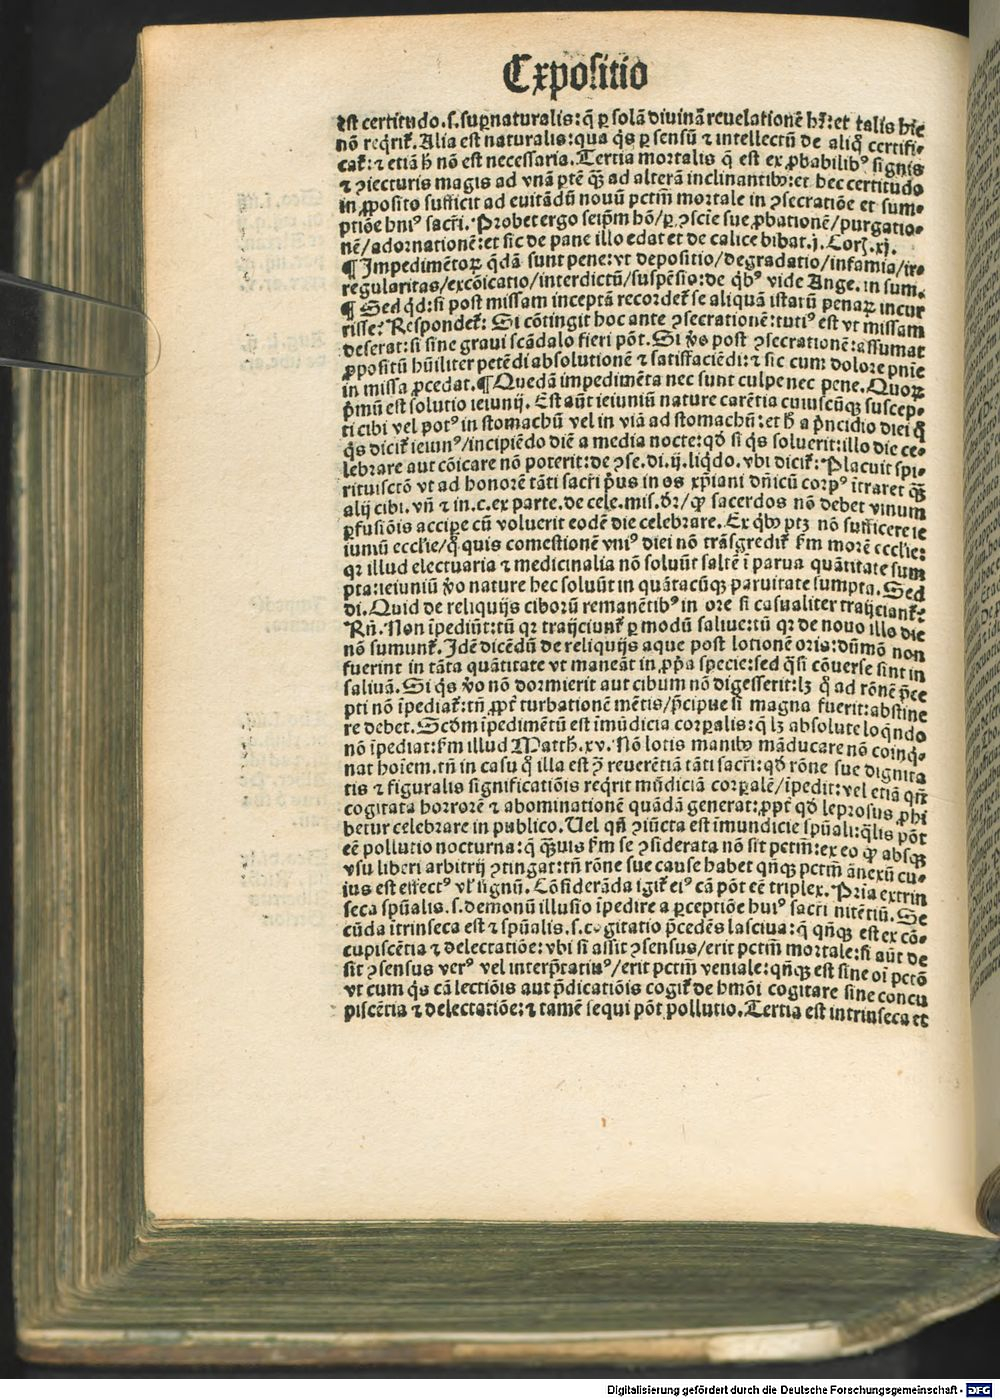 Expositio
est certitudo.s.sup̲naturalis:q̃ p̲ solã diuinã reuelationẽ hr̃:et talis hic
nõ req̃rit᷑. Alia est naturalis:qua q̃s p̲ sensũ ⁊ intellectũ de aliq̃ certifi⸗
cat᷑:⁊ etiã h̃ nõ est necessaria. Tertia mortalis q̃ est ex ꝓbabilibꝰ signis
⁊ ꝯiecturis magis ad vnã ptẽ q̃ꝫ ad alterã inclinantibꝰ:et hec certitudo
in ꝓposito sufficit ad euitãdũ nouũ pctm̃ mortale in ꝯsecratiõe et sum⸗
ptiõe huiꝰ sacr̃i. Probet ergo seip̃m hõ/ꝑ ꝯsciẽ sue ꝓbationẽ/purgatio⸗
nẽ/adornationẽ:et sic de pane illo edat et de calice bibat.j.Corꝫ.xj.
¶ Impedimẽtoꝝ q̃dã sunt pene:vt depositio/degradatio/infamia/ir⸗
regularitas/excõicatio/interdictũ/suspẽsio:de q̃bꝰ vide Ange. in sum.
¶ Sed q̃d:si post missam inceptã recordet᷑ se aliquã istaꝝ penaꝝ incur
risse? Respondet᷑: Si cõtingit hoc ante ꝯsecrationẽ:tutiꝰ est vt missam
deserat:si sine graui scãdalo fieri põt. Si ṽo post ꝯsecrationẽ:assumat
ꝓpositũ hũiliter petẽdi absolutionẽ ⁊ satisfaciẽdi:⁊ sic cum dolore pnĩe
in missa ꝓcedat.¶ Quedã impedimẽta nec sunt culpe nec pene. Quoꝝ
p̃mũ est solutio ieiunij. Est aũt ieiuniũ nature carẽtia cuiuscũqꝫ suscep⸗
ti cibi vel potꝰ in stomachũ vel in viã ad stomachũ:et h̃ a p̃ncidio diei q̃
q̃s dicit᷑ ieiunꝰ/incipiẽdo diẽ a media nocte:qđ si q̃s soluerit:illo die ce⸗
lebrare aut cõicare nõ poterit:de ꝯse.di.ij.liq̃do.vbi dicit᷑: Placuit spi⸗
rituisctõ vt ad honorẽ tãti sacr̃i p̃us in os xp̃iani dñicũ corpꝰ ĩtraret q̃ꝫ
alij cibi.vñ ⁊ in.c.ex parte.de cele.mis.dr̃/ꝙ sacerdos nõ debet vinum
ꝑfusiõis accipe cũ voluerit eodẽ die celebrare. Ex q̃bꝰ ptꝫ nõ sufficere ie
iuniũ eccl̃ie/q̃ quis comestionẽ vniꝰ diei nõ trãsgredit᷑ ẜm morẽ eccl̃ie:
qꝛ illud electuaria ⁊ medicinalia nõ soluũt saltẽ ĩ parua quãtitate sum
pta:ieiuniũ ṽo nature hec soluũt in quãtacũqꝫ paruitate sumpta. Sed
di. Quid de reliquijs ciborũ remanẽtibꝰ in ore si casualiter traijciant᷑?
Rñ. Non ĩpediũt:tũ qꝛ traijciunt᷑ ꝑ modũ saliue:tũ qꝛ de nouo illo die
nõ sumunt᷑. Idẽ dicẽdũ de reliquijs aque post lotionẽ oris:dũmõ non
fuerint in tãta quãtitate vt maneãt in ꝓp̃a specie:sed q̃si cõuerse sint in
saliuã. Si q̃s ṽo nõ dormierit aut cibum nõ digesserit:lꝫ q̃ ad rõnẽ p̃ce
pti nõ ĩpediat᷑:tñ ꝓpt᷑ turbationẽ mẽtis/p̃cipue si magna fuerit:abstine
re debet. Scđm ĩpedimẽtũ est ĩmũdicia corꝑalis:q̃ lꝫ absolute loq̃ndo
nõ ĩpediat:ẜm illud Matth.xv. Nõ lotis manibꝰ mãducare nõ coinq̃⸗
nat hoĩem.tñ in casu q̃ illa est ꝯ̃ reuerẽtiã tãti sacr̃i:qđ rõne sue dignita
tis ⁊ figuralis significatiõis req̃rit mũdiciã corꝑalẽ/ĩpedit:vel etiã qñ
cogitata horrorẽ ⁊ abominationẽ quãdã generat:ꝓpt᷑ qđ leprosus ꝓhi
betur celebrare in publico. Uel qñ ꝯiũcta est ĩmundicie spũali:q̃lis põt
eẽ pollutio nocturna:q̃ q̃ꝫuis ẜm se ꝯsiderata nõ sit pctm̃:ex eo ꝙ absqꝫ
vsu liberi arbitrij ꝯtingat:tñ rõne sue cause habet qñqꝫ pctm̃ ãnexũ cu⸗
ius est effectꝰ vl̃ signũ. Cõsiderãda igit᷑ eiꝰ cã põt eẽ triplex. Pria extrin
seca spũalis.s.demonũ illusio ĩpedire a ꝑceptiõe huiꝰ sacr̃i nitẽtiũ. Se
cũda ĩtrinseca est ⁊ spũalis.s.cogitatio p̃cedẽs lasciua:q̃ qñqꝫ est ex cõ⸗
cupiscẽtia ⁊ delectatiõe:vbi si assit ꝯsensus/erit pctm̃ mortale:si aũt de
sit ꝯsensus verꝰ vel interp̃tatiuꝰ/erit pctm̃ veniale:qñqꝫ est sine oĩ pctõ
vt cum q̃s cã lectiõis aut p̃dicatiõis cogit᷑ de hmõi cogitare sine concu
piscẽtia ⁊ delectatiõe:⁊ tamẽ sequi põt pollutio. Tertia est intrinseca et
Digitalisierung gefördert durch die Deutsche Forschungsgemeinschaft - DFG